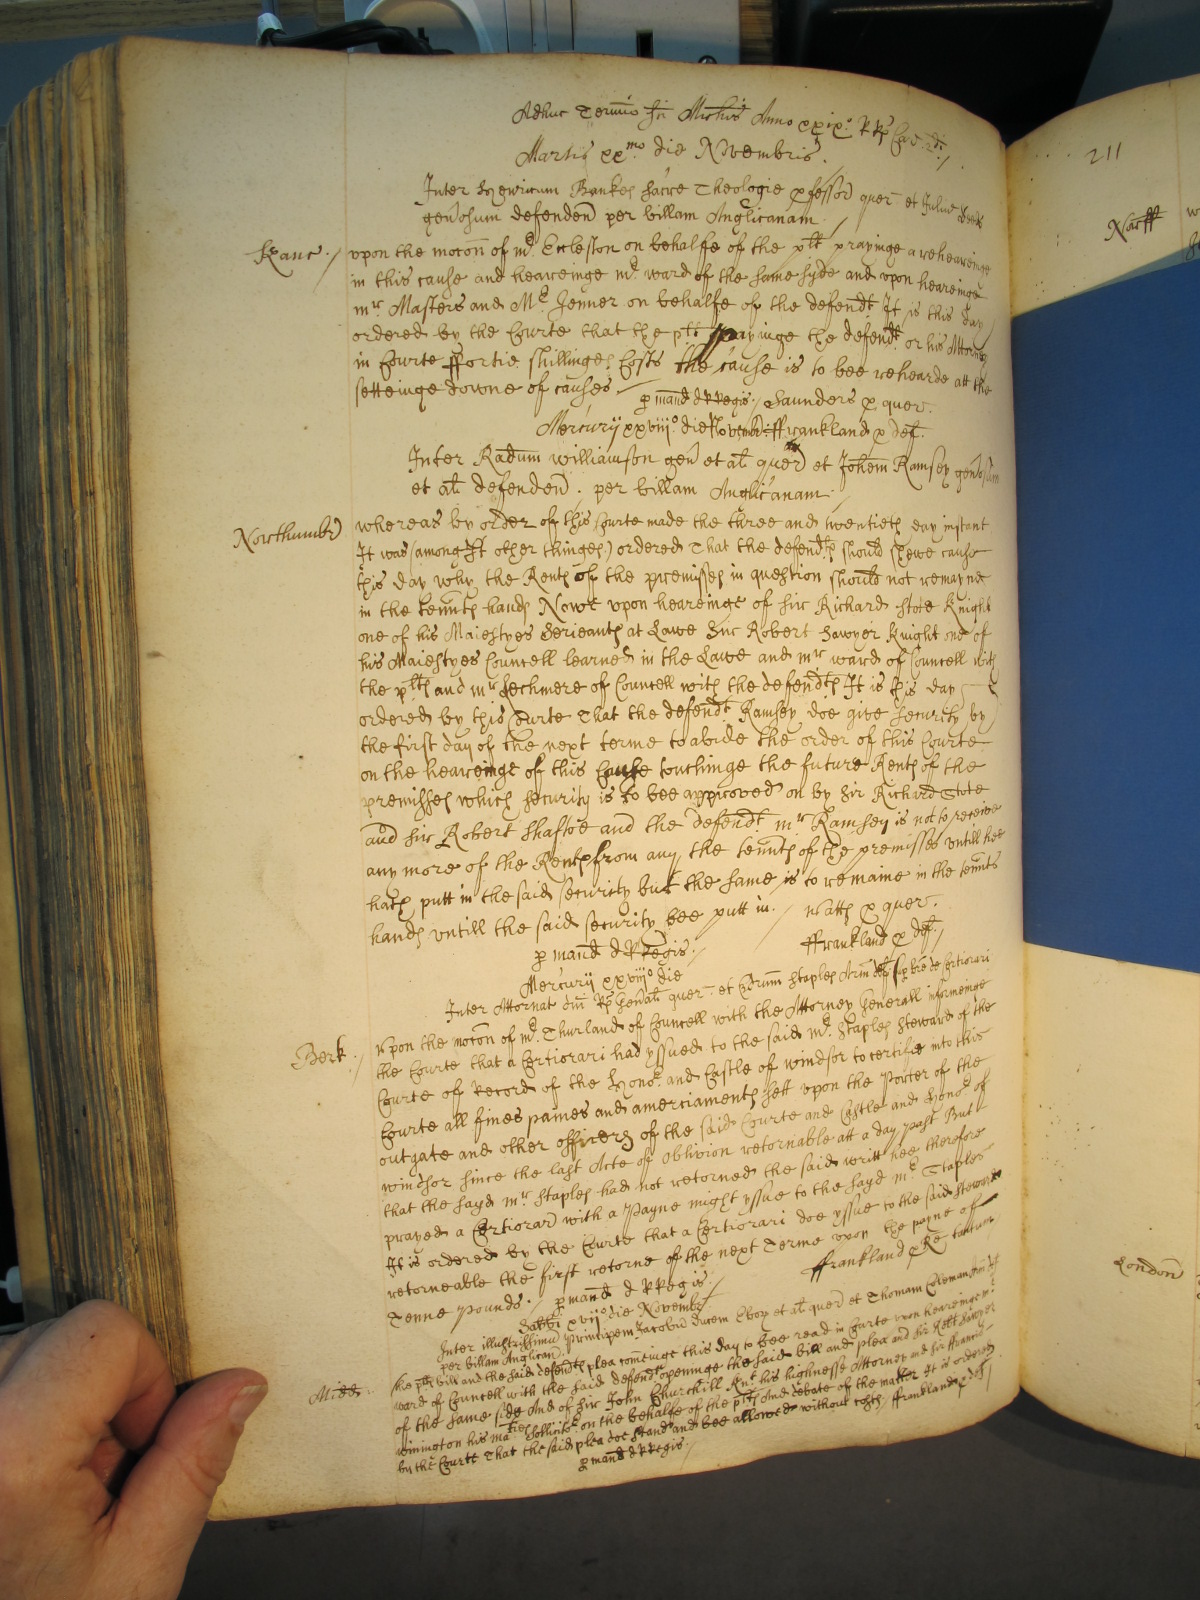 Adhuc Termino Sc̃i Mich̃is Anno xxix.o R Rs Car. 2di./
Martis xxmo die Novembris./
Inter Henricum Bankes sacre Theologie p̱fessor̃ quer̃ et
gen̄osum defenden̄ per billam Anglicanam
Lanc./
vpon the moc̃on of mr. Eccleston on behalfe of the plt prayinge a reheareinge
in this cause and heareinge mr. ward of the same syde and vpon heareinge
mr Masters and Mr. Jenner on behalfe of the defendt. It is this day
ordered by the Courte that the plt payinge the defendt. or his Attorney
in Courte ffortie shillinges Costs the cause is to bee rehearde att the
setteinge downe of causes
p̱ mand̃ d R Regis./ Saunders p̱ quer.
Mercurij xxviijo. die Novembr̃ ffrankland p̱ def.
Inter Radum̃ williamson gen̄ et al̃ quer̃ et Joh̃em Ramsey gen̄osum
et al̃ defenden̄. per billam Anglicanam./
Northumbr̃
whereas by order of this Courte made the three and twentieth day instant
It was (amongst other thinges) ordered That the defendts. should shewe cause
this day why the Rents of the premisses in question should not remayne
in the tenn̄ts hands Nowe vpon heareinge of Sir Richard Stote Knight
one of his Maiestyes Serieants at Lawe Sir Robert Sawyer Knight one of
his Maiestyes Councell learned in the Lawe and mr ward of Councell with
the plts and mr Lechmere of Councell with the defendts It is this day
ordered by this Courte That the defendt. Ramsey doe give security by
the first day of the next terme to abide the order of this Courte
on the heareinge of this Cause touchinge the future Rents of the
premisses which security is to bee approoved on by Sir Richard Stote
and Sir Robert Shaftoe and the defendt. mr. Ramsey is not to receive
any more of the Rents from any the tenn̄ts of the premisses vntill hee
hath putt in the said security but the same is to remaine in the tenn̄ts
hands vntill the said security bee putt in./ Watts p̱ quer.
p̱ mand̃ d R Regis./ ffrankland p̱ def./
Mercurij xxviijo die
Inter Attornat dñi Rs Gen̄al̃ quer̃ et Staples Ar̃m def sup̱ br̃e de Certiorari
Berk./
Vpon the moc̃on of mr. Thurland of Councell with the Attorney Generall informeinge
the Courte that a Certiorari had yssued to the said mr. Staples Steward of the
Courte of Record of the Honor. and Castle of windsor to certifie into this
Courte all fines paines and amerciaments sett vpon the Porter of the
outgate and other officers of the said Courte and Castle and Honor. of
windsor since the last Acte of Oblivion retornable att a day past But
that the sayd mr Staples had not retorned the said writt hee therefore
prayed a Certiorari with a Payne might yssue to the sayd mr. Staples
It is ordered by the Courte that a Certiorari doe yssue to the said Steward
retorneable the first retorne of the next Terme vpon the payne of
Tenne Pounds./ p̱ mand̃ d R Regis./ ffrankland p̱ Re tantum
Sabbi xvijo die Novembr̃
Inter illustrissimu Principem Jacobu Ducem Ebor et al̃ quer̃ et Thomam Coleman def
per billam Anglican̄.
Midd.
the plts bill and the said defendts plea comeinge this day to bee read in Courte vpon heareinge mr
ward of Councell with the said defendt openinge the said bill and plea and Sir Robt Sawyer
of the same side And of Sir John Churchill Knt. his highnesse Attorney and Sir ffrancis
winington his maties Sollicitor on the behalfe of the plts And debate of the matter It is ordered
by the Courte That the said plea doe stand and bee allowed without costs/ ffrankland p̱ def/
p̱ mand̃ d R Regis./
211
Norff
London